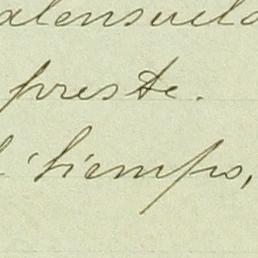 alensuela
preste.
l tiempo,